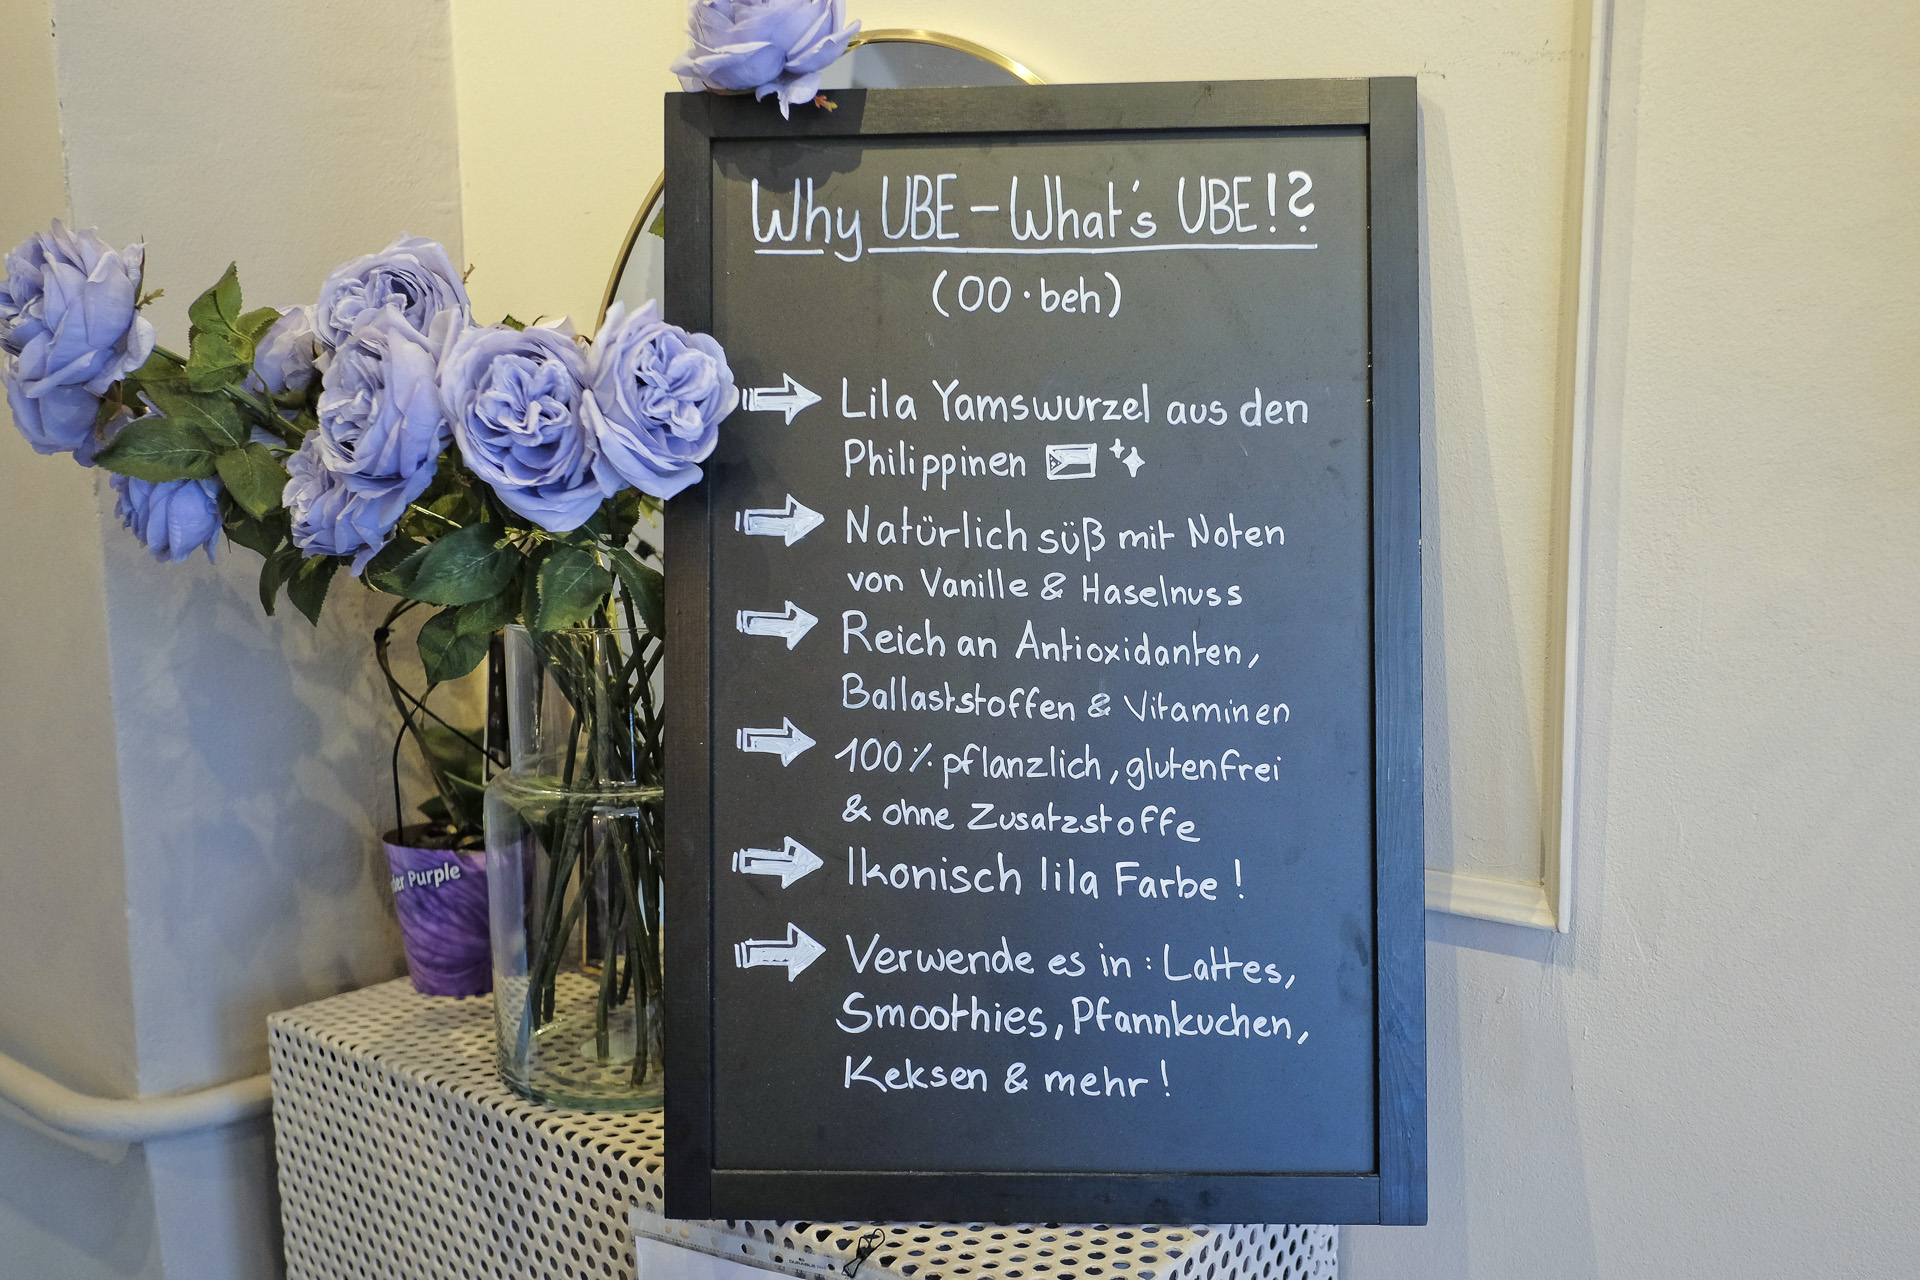 Why UBE – What's UBE!?
(OO·beh)
Lila Yamswurzel aus den
Philippinen
Natürlich süß mit Noten
von Vanille & Haselnuss
Reich an Antioxidanten,
Ballaststoffen & Vitaminen
100% pflanzlich, glutenfrei
& ohne Zusatzstoffe
Ikonisch lila Farbe!
Verwende es in: Lattes,
Smoothies, Pfannkuchen,
Keksen & mehr!
Purple
DURABLE